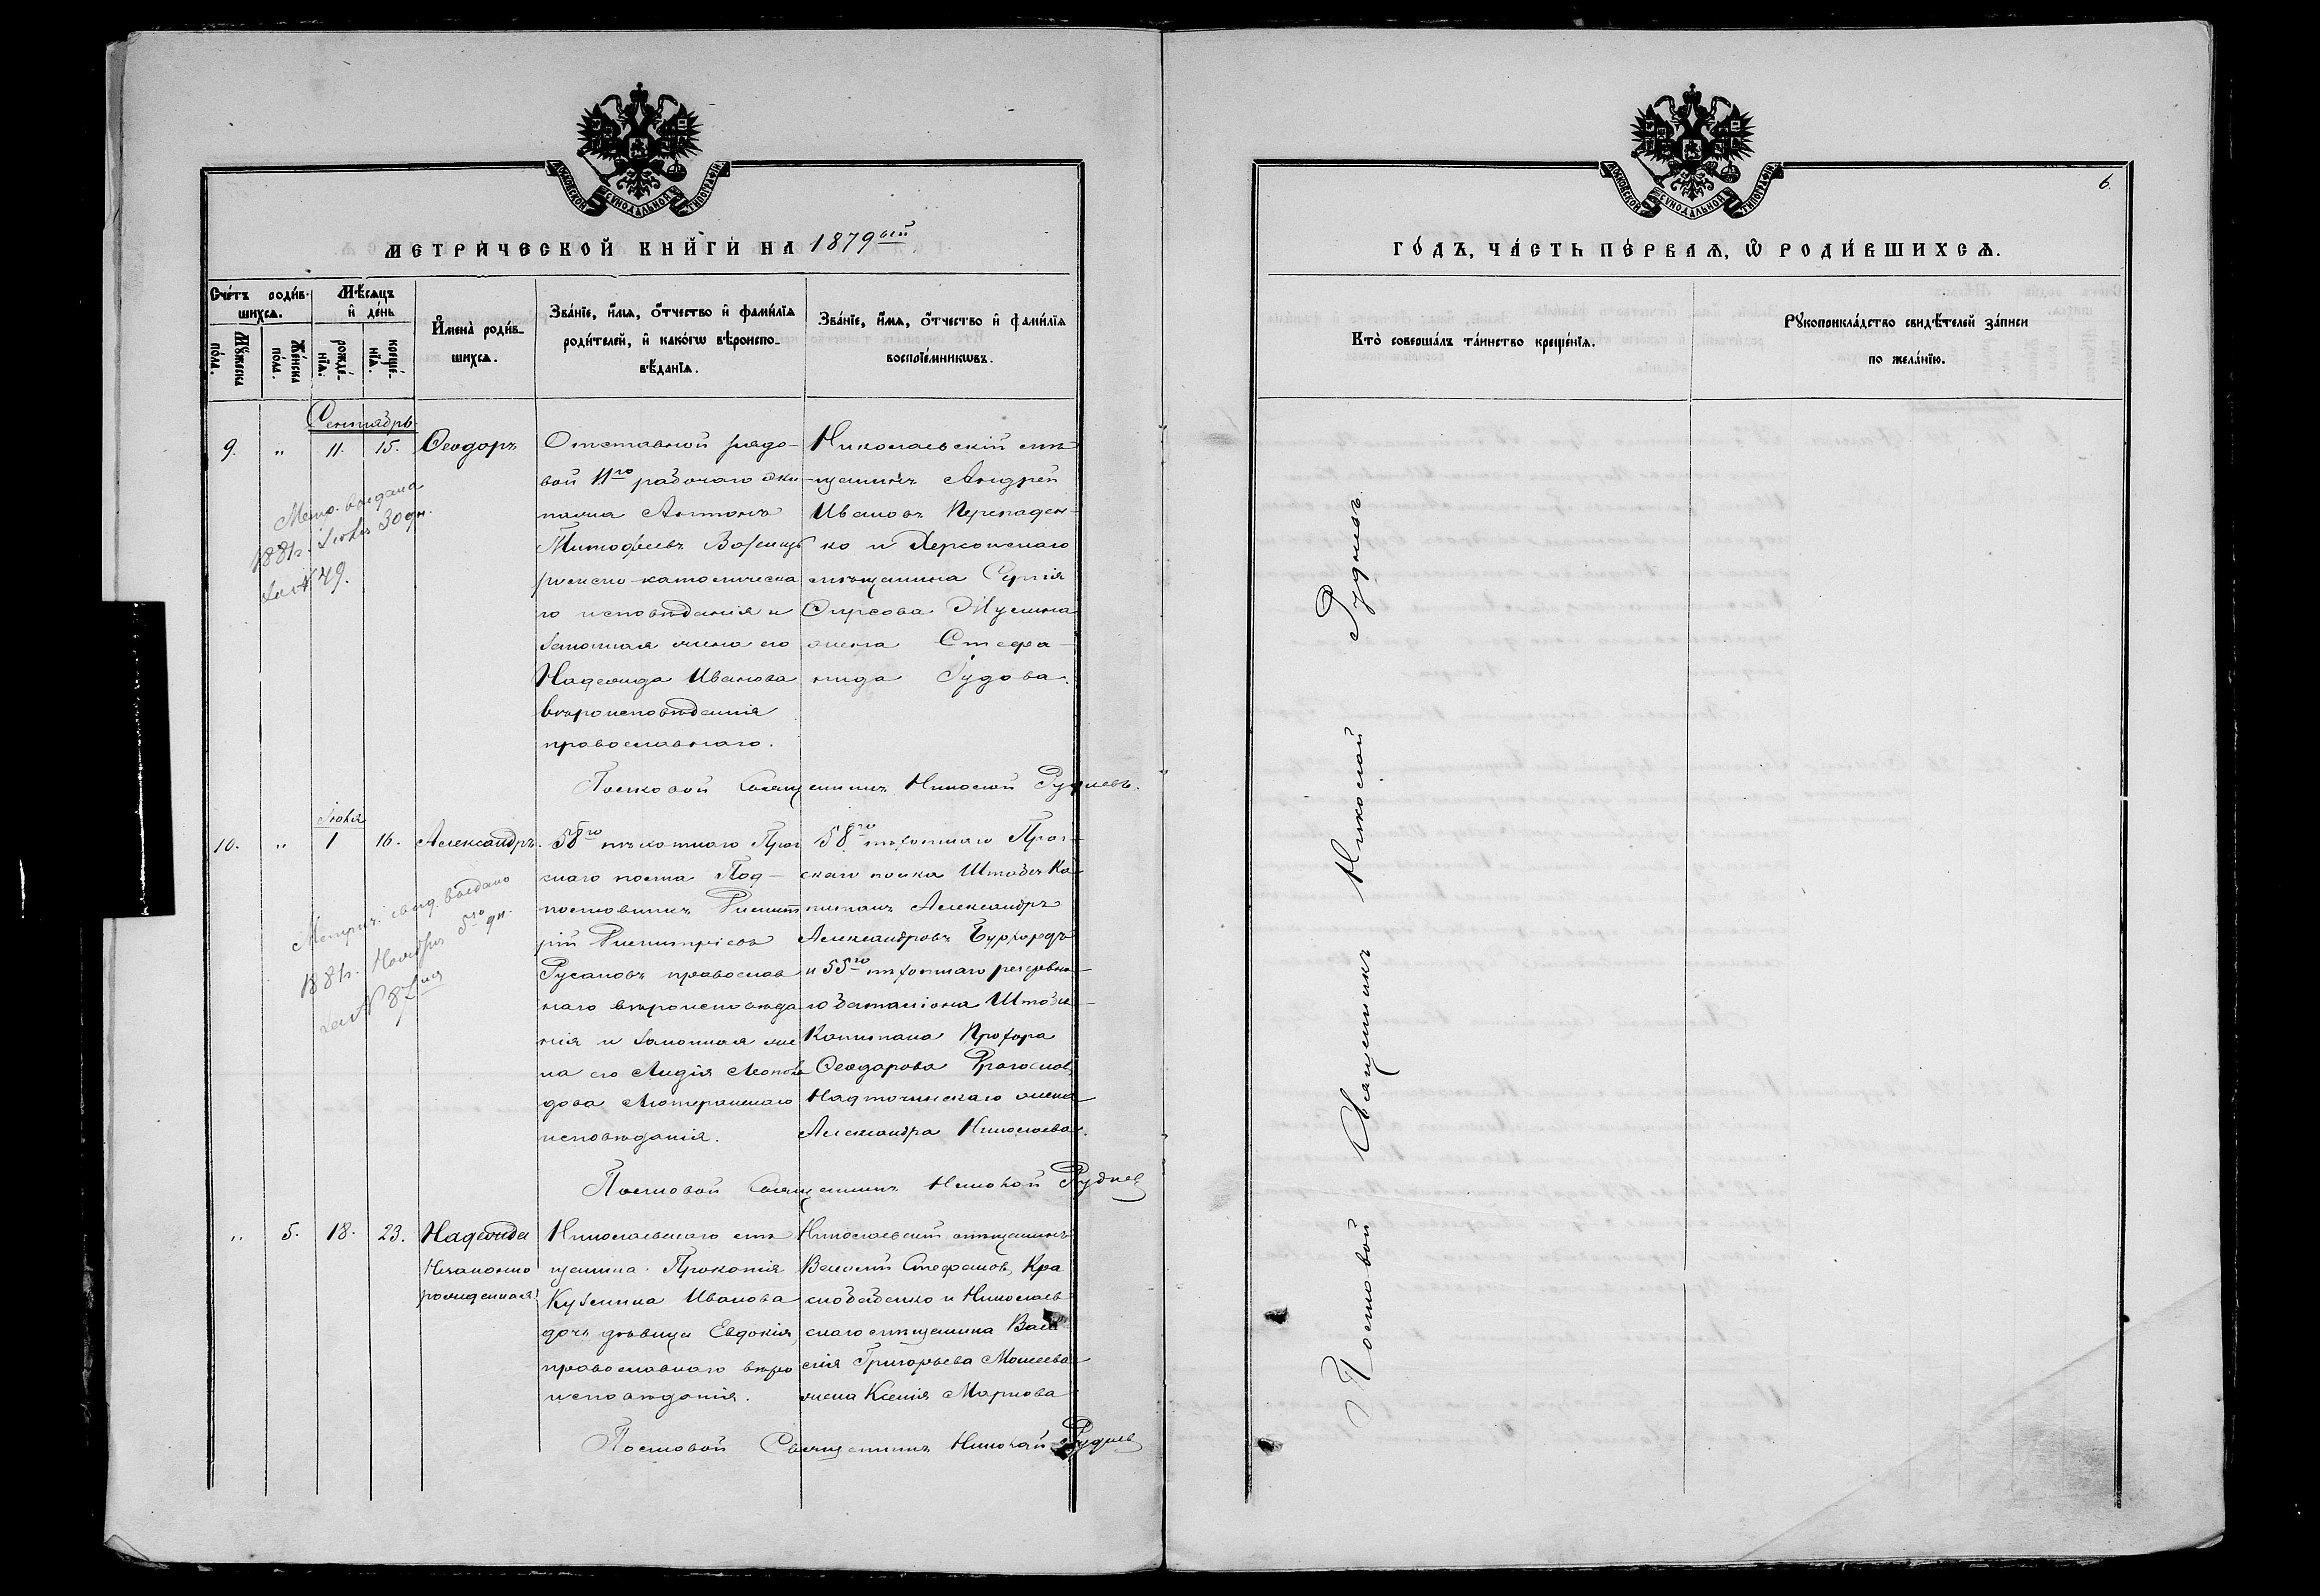 МОСКОВСКОЙ СѴНОДАЛЬНОЙ ТИПОГРАФІИ
МЕТРИ́ЧЕСКОЙ КНИ́ГИ НА 1879ый
Сче́тъ роди́в-
шихсѧ.
Мꙋ́жеска по́ла.
Же́нска по́ла.
Мѣ́сѧцъ
и҆ де́нь
рожде́-
нїѧ.
креще́-
нїѧ.
И҆мена̀ роди́в-
шихсѧ.
Зва́нїе, и҆́мѧ, ѻ҆́тчество и҆ фами́лїѧ
роди́телей, и҆ како́гѡ вѣроиспо-
вѣ́данїѧ.
Зва́нїе, и҆́мѧ, ѻ҆́тчество и҆ фами́лїѧ
воспрїе́мникѡвъ.
Сентябрь
9. " 11. 15. Ѳеодоръ
Отставной рядо-
вой 11го рабочаго эки-
пажа Антонъ
Тимофеевъ
римско-католическа
го исповѣданія и
законная жена его
Надежда Иванова
вѣроисповѣданія
православнаго.
Николаевскій мѣ
щанинъ Андрей
Ивановъ Перепаден-
ко и Херсонскаго
мѣщанина Сергія
Фирсова
жена Стефа-
нида
Метр. выдана
1881г. Іюня 30 дн.
за № 49.
Полковой Священникъ Николай Рудневъ.
Іюля
10. " 1 16. Александръ.
58го пѣхотнаго Праг
скаго полка Под-
полковникъ Димит
рій Димитріевъ
Русановъ православ
наго вѣроисповѣда
нія и законная же
на его Лидія Леополь
дова Лютеранскаго
исповѣданія.
58го пѣхотнаго Праг-
скаго полка Штабсъ Ка
питанъ Александръ
Александровъ
и 55го пѣхотнаго резервна-
го баталіона Штабсъ
Капитана Прохора
Ѳеодорова
жена
Александра Николаева.
Метрич. свид. выдано
1881г. Ноября 5го дн.
за № 87
Полковой Священникъ Николай Рудневъ
" 5. 18. 23. Надежда
Незаконно
рожденная.
Николаевскаго мѣ
щанина Прокопія
Кузьмина Иванова
дочь дѣвица Евдокія,
православнаго вѣро
исповѣданія.
Николаевскій мѣщанинъ
Василій Стефановъ Кра
снобаенко и Николаев
скаго мѣщанина Васи
лія Григорьева Моисеева
жена Ксенія Маркова
Полковой Священникъ Николай Рудневъ
МОСКОВСКОЙ СѴНОДАЛЬНОЙ ТИПОГРАФІИ
6.
ГО́ДЪ, ЧА́СТЬ ПЕ́РВАѦ, Ѡ҆ РОДИ́ВШИХСѦ.
Кто̀ соверша́лъ та́инство креще́нїѧ.
Рꙋкоприкла́дство свидѣ́телей за́писи
по жела́нїю.
Полковой Священникъ Николай Рудневъ.